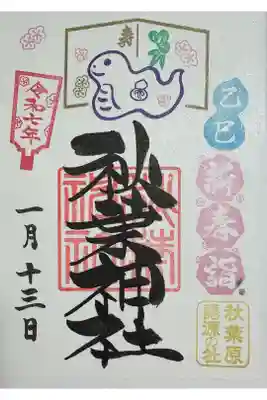 寿
乙巳
新春詣
秋葉原
秋葉神社
令和七年
一月十三日